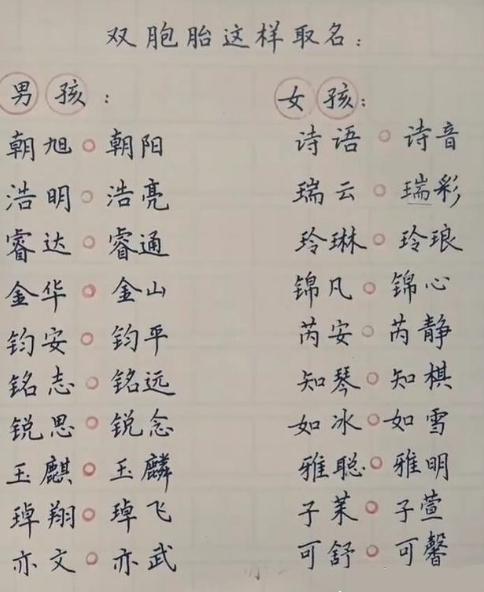 双胞胎这样取名:
男孩: 女孩:
朝旭○朝阳 诗语○诗音
浩明○浩亮 瑞云○瑞彩
睿达○睿通 玲琳○玲琅
金华○金山 锦凡○锦心
钧安○钧平 芮安○芮静
铭志○铭远 知琴○知棋
锐思○锐念 如冰○如雪
玉麒○玉麟 雅聪○雅明
琸翔○琸飞 子茉○子萱
亦文○亦武 可舒○可馨